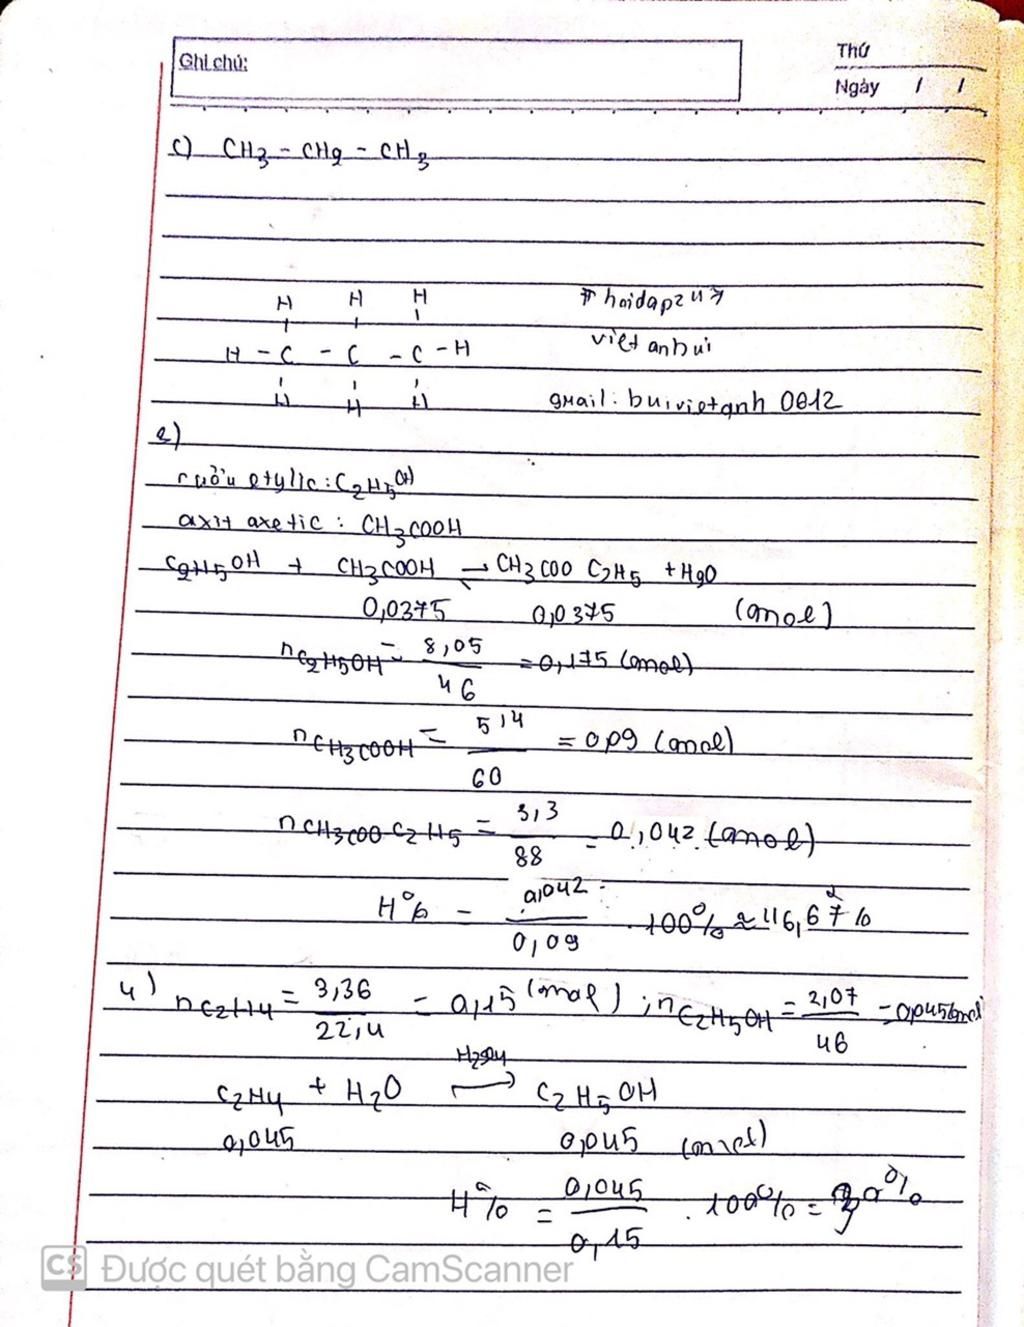 Ghi chú:
Thứ
Ngày / /
c) CH3 - CH2 - CH3
H H H
H - C - C - C - H
H H H
# hoidap247
vietanhbui
gmail: buivietanh 0812
2)
rượu etylic: C2H5OH
axit axetic: CH3COOH
C2H5OH + CH3COOH ⇌ CH3COO C2H5 + H2O
0,0375 0,0375 (mol)
nC2H5OH = 8,05/46 = 0,175 (mol)
nCH3COOH = 5,4/60 = 0,09 (mol)
nCH3COOC2H5 = 3,3/88 = 0,042 (mol)
H% = 0,042/0,09 . 100% ≈ 46,67%
4) nC2H4 = 3,36/22,4 = 0,15 (mol) ; nC2H5OH = 2,07/46 = 0,045(mol)
H2SO4
C2H4 + H2O ⇌ C2H5OH
0,045 0,045 (mol)
H% = 0,045/0,15 . 100% = 30%
CS Được quét bằng CamScanner